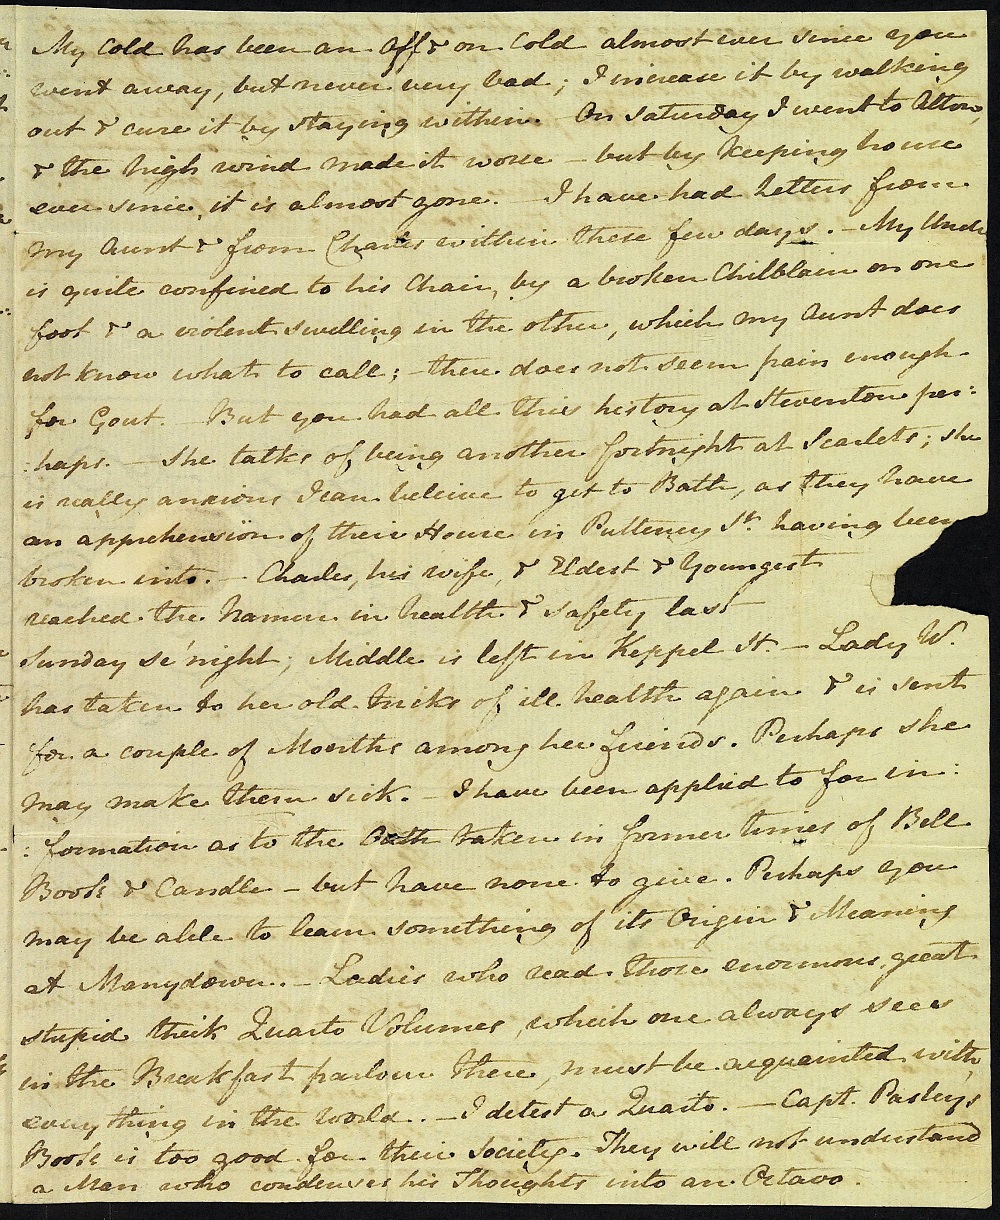 My Cold has been an Off & on Cold almost ever since you
went away, but never very bad; I increase it by walking
out & cure it by staying within. On Saturday I went to Alton,
& the high wind made it worse – but by keeping house
ever since, it is almost gone. – I have had Letters from
my Aunt & from Charles within these few days. – My Uncle
is quite confined to his Chair, by a broken Chilblain on one
foot & a violent swelling in the other, which my Aunt does
not know what to call; – there does not seem pain enough
for Gout. – But you had all this history at Steventon per:
:haps. – She talks of being another fortnight at Scarlets; she
is really anxious I can beleive to get to Bath, as they have
an apprehension of their House in Pulteney St. having been
broken into. – Charles, his wife, & Eldest & Youngest
reached the Namur in health & safety last
Sunday se'night; Middle is left in Keppel St. – Lady W.
has taken to her old tricks of ill health again & is sent
for a couple of Months among her friends. Perhaps she
may make them sick. – I have been applied to for in:
:formation as to the Oath taken in former times of Bell
Book & Candle – but have none to give. Perhaps you
may be able to learn something of its Origin & Meaning
at Manydown. – Ladies who read those enormous great
stupid thick Quarto Volumes, which one always sees
in the Breakfast parlour there, must be acquainted with
everything in the world. – I detest a Quarto. – Capt. Pasley's
Book is too good for their Society. They will not understand
a Man who condenses his Thoughts into an Octavo.